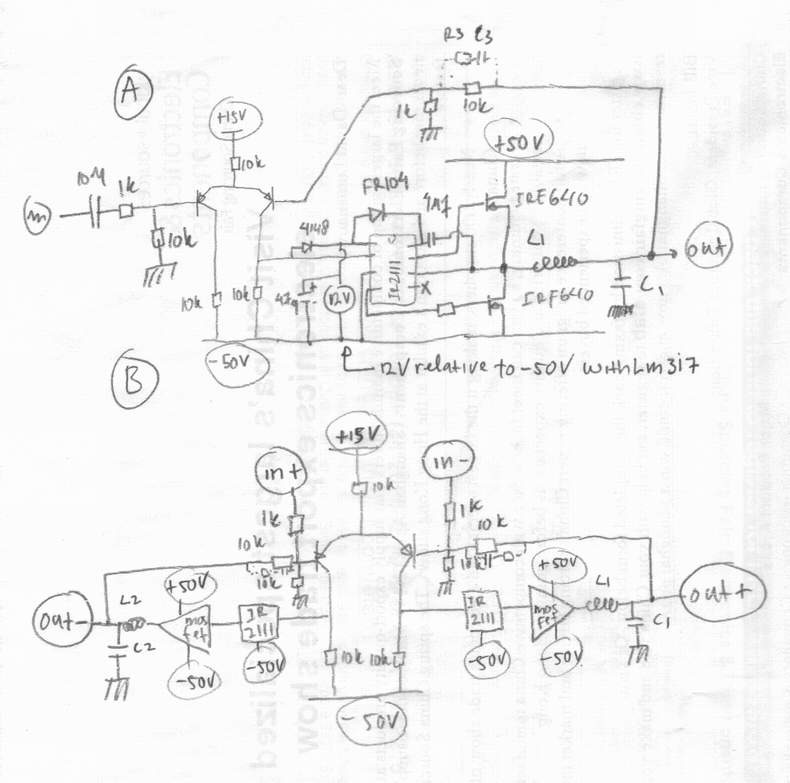 R3 C3
A
1k
10k
+15V
+50V
10k
FR104
IRE640
10M
1k
4148
L1
in
out
10k
IR2111
C1
10k
10k
12V
X
IRF640
-50V
12V relative to -50V with Lm317
B
+15V
in+
in-
10k
1k
1k
10k
10k
10k
10k
+50V
L1
+50V
out-
L2
mos
fet
IR
2111
IR
2111
mos
fet
out+
C2
C1
-50V
-50V
10k
10k
-50V
-50V
-50V